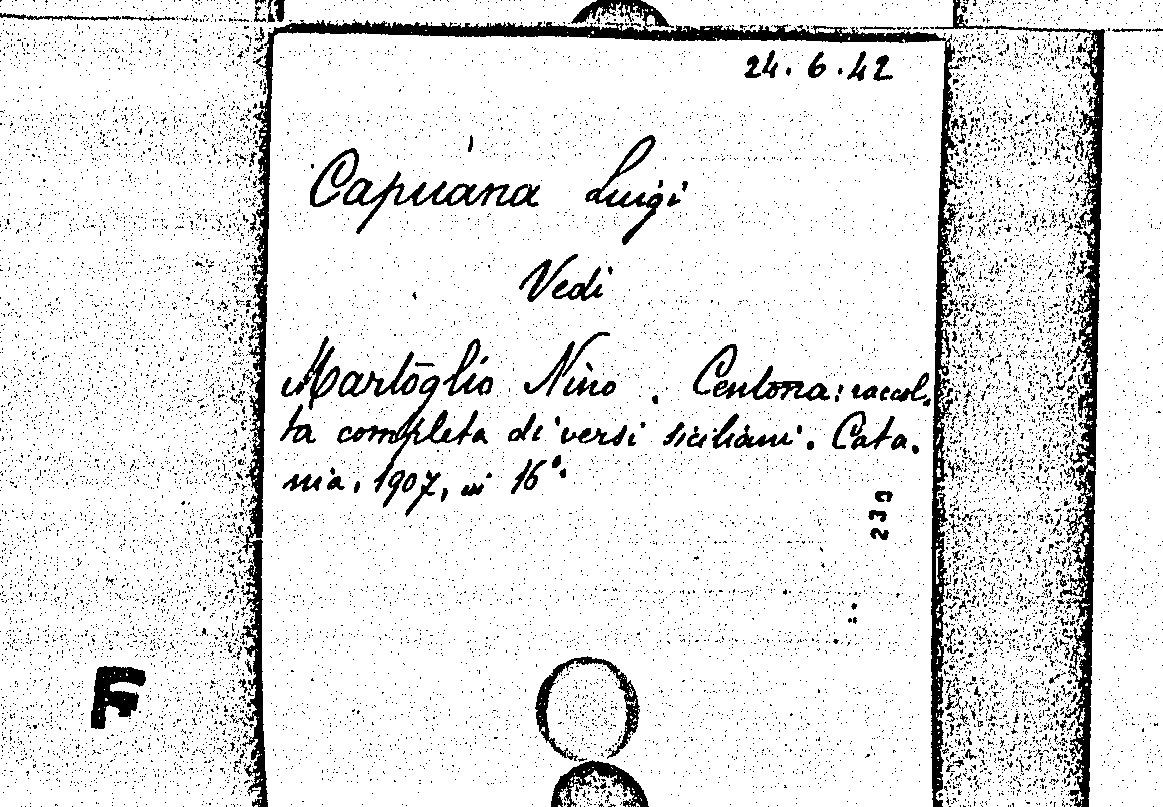 24.6.42
Capuana Luigi
Vedi
Martoglio Nino. Centona: raccol-
ta completa di versi siciliani. Cata-
nia, 1907, in 16°.
239
F